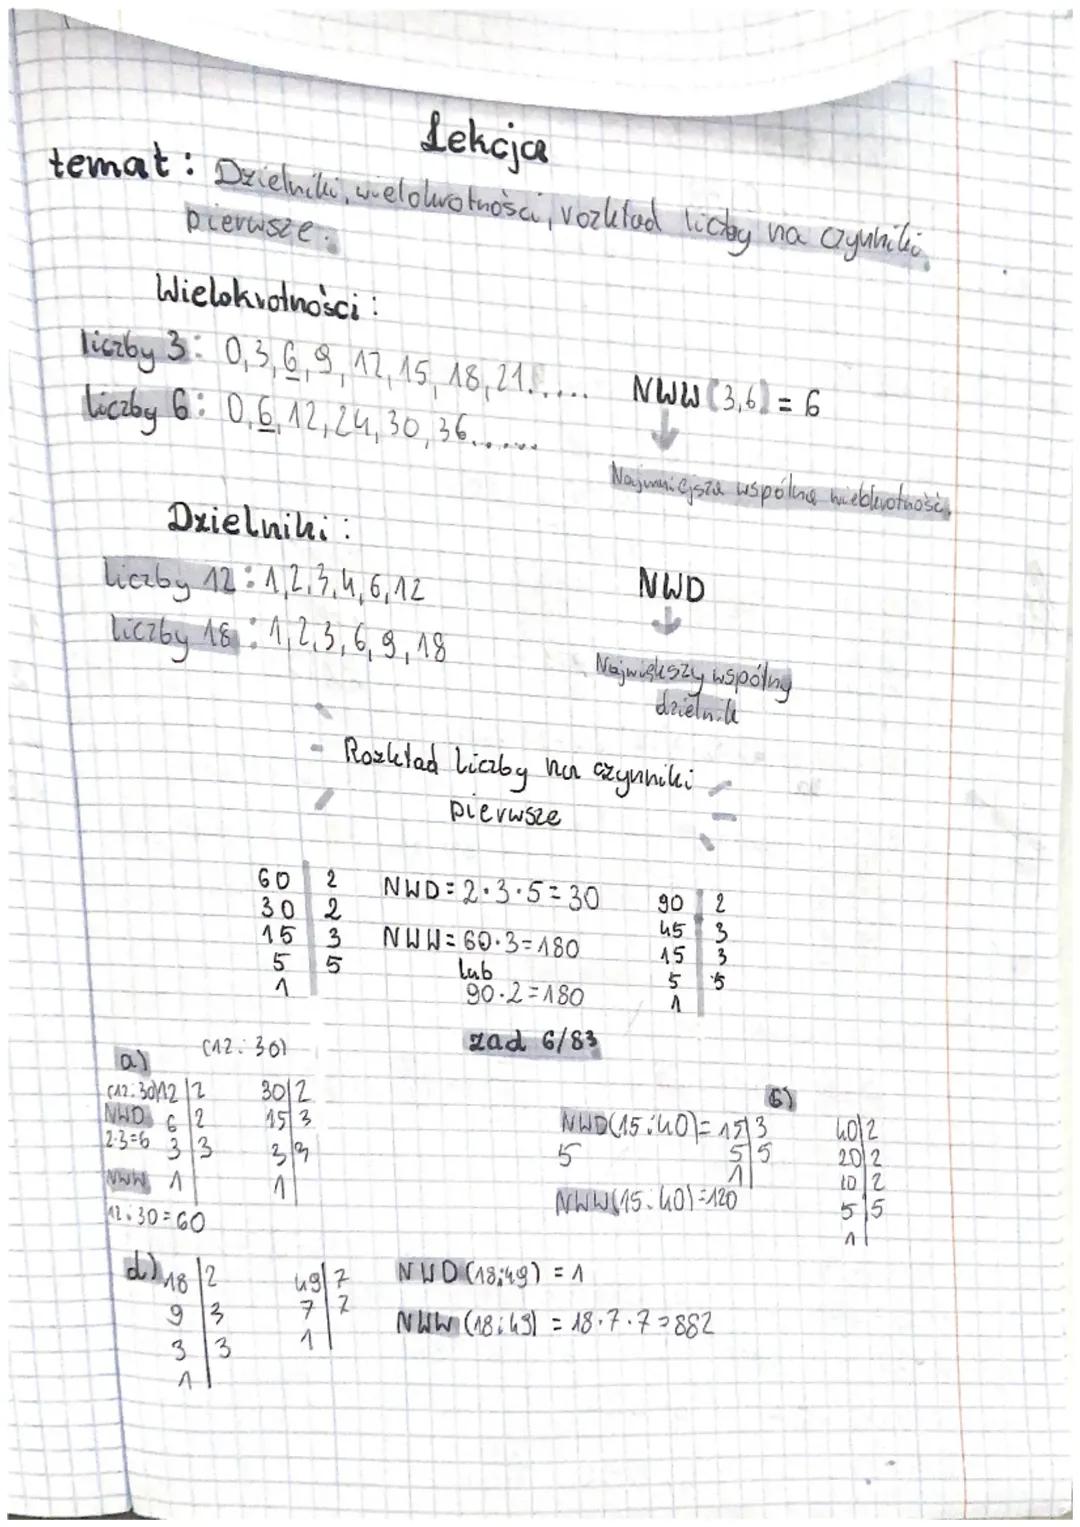 Lekcja
temat: Dzielniki, wielokrotności, rozkład liczby na czynniki
pierwsze.
Wielokrotności:
liczby 3: 0,3,6,9,12,15,18,21......
liczby 6: 0,6,12,24,30,36......
NWW(3,6) = 6
↓
Najmniejsza wspólna wielokrotność.
Dzielniki:
liczby 12: 1,2,3,4,6,12
liczby 18: 1,2,3,6,9,18
NWD
↓
Największy wspólny
dzielnik
Rozkład liczby na czynniki
pierwsze
60 | 2
30 | 2
15 | 3
5 | 5
1
NWD=2·3·5=30
NWW=60·3=180
lub
90·2=180
90 | 2
45 | 3
15 | 3
5 | 5
1
zad 6/83
a) (12:30)
(12:30) 12|2 30|2
NWD 6|2 15|3
2·3=6 3|3 3|3
NWW 1| 1|
12:30=60
b)
NWD(15:40)= 15|3 40|2
5 5|5 20|2
1| 10|2
NWW(15:40)=120 5|5
1|
d) 18|2 49|7 NWD(18;49) = 1
9|3 7|7
3|3 1| NWW(18;49) = 18·7·7=882
1|